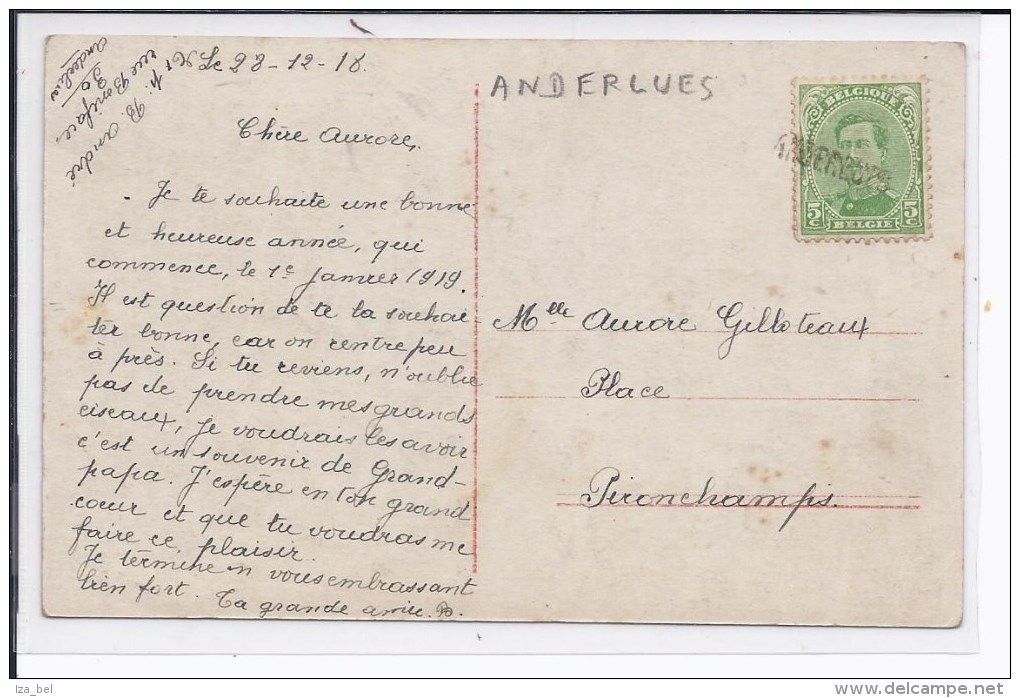 Le 28-12-18.
B. André
rue Boniface,
30
Anderlues
Chère Aurore,
Je te souhaite une bonne
et heureuse année, qui
commence, le 1e Janvier 1919.
Il est question de te la souhai
ter bonne, car on rentre peu
à près. Si tu reviens, n'oublie
pas de prendre mes grands
ciseaux, je voudrais les avoir
c'est un souvenir de Grand-
papa. J'espère en ton grand
coeur et que tu voudras me
faire ce plaisir.
Je termine en vous embrassant
bien fort. Ta grande amie. B.
ANDERLUES
BELGIQUE
ANDERLUES
5c 5c
BELGIE
Melle Aurore Gilloteaux
Place
Pironchamps.
lza_bel
http://www.delcampe.net